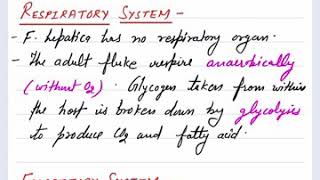 RESPIRATORY SYSTEM -
- F. hepatica has no respiratory organ.
- The adult fluke respire anaerobically
(without O2). Glycogen taken from within
the host is broken down by glycolysis
to produce CO2 and fatty acid.
SYSTEM -